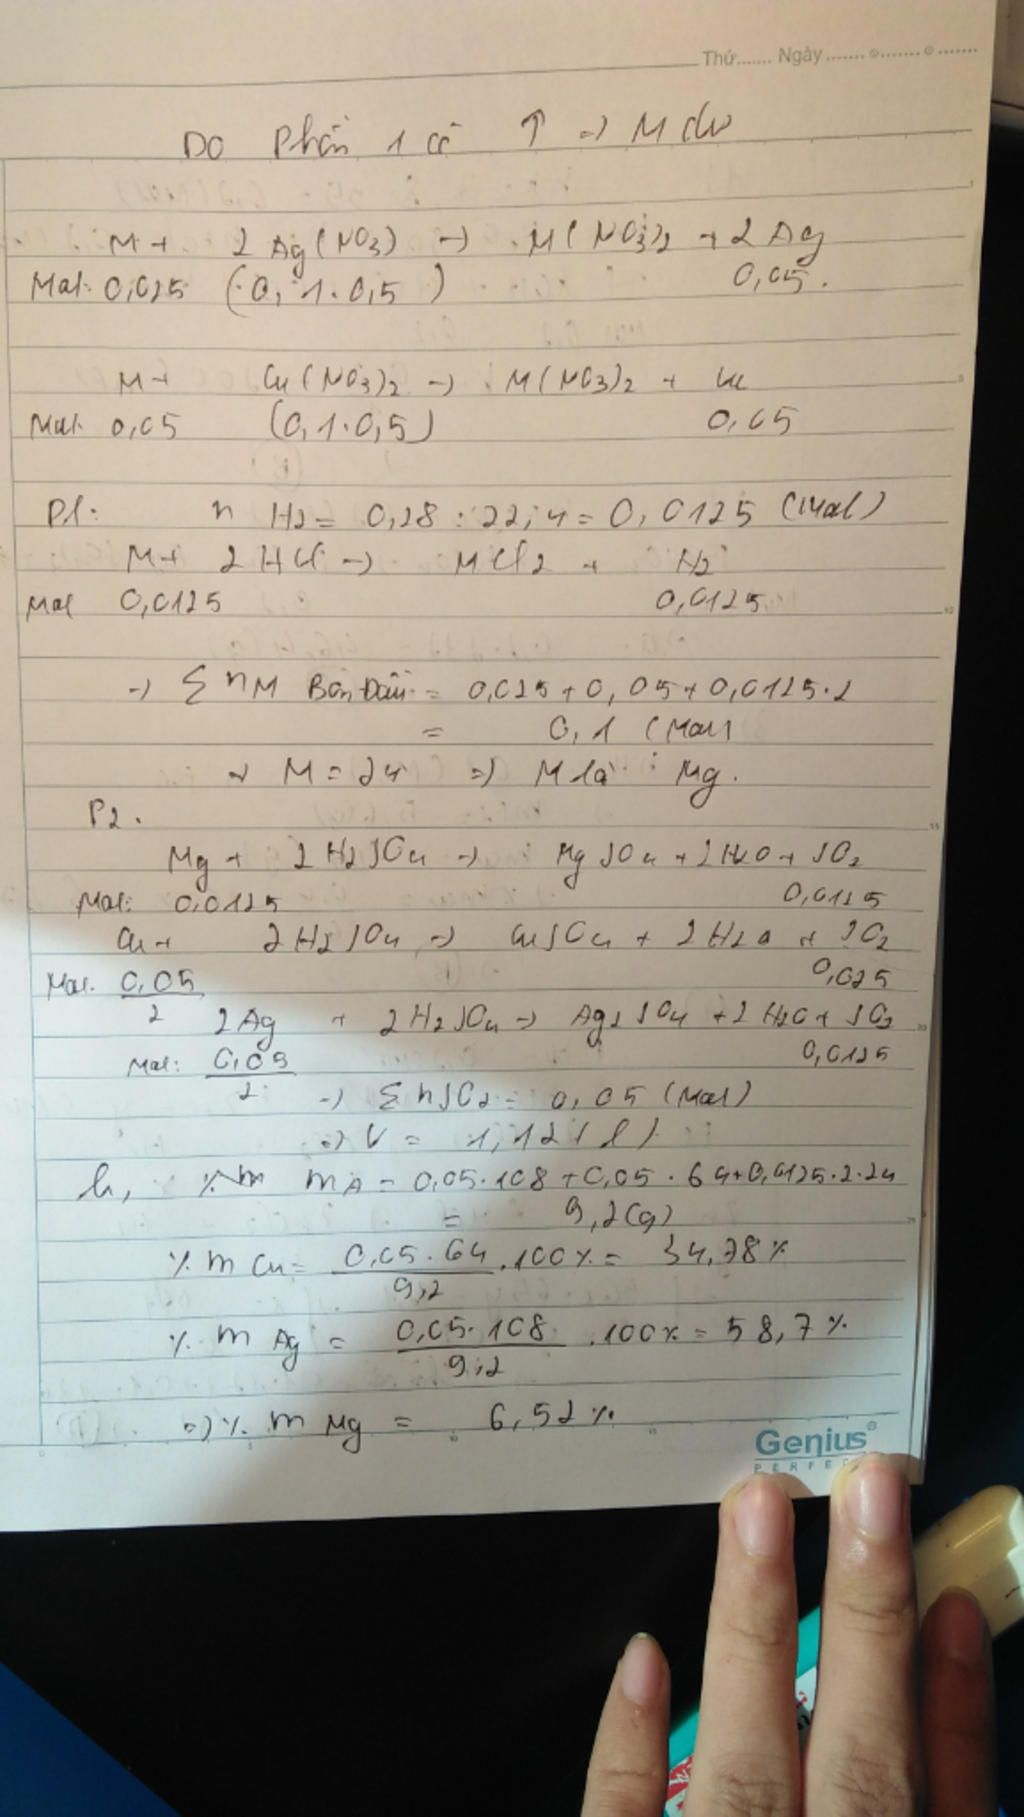 Thứ....... Ngày ....... ........ .......
Do Phần 1 có ↑ => M dư
M + 2 Ag(NO3) -> M(NO3)2 + 2 Ag
Mol: 0,025 (0,1.0,5) 0,05.
M + Cu(NO3)2 -> M(NO3)2 + Cu
Mol: 0,05 (0,1.0,5) 0,05
P1: n H2 = 0,28 : 22,4 = 0,0125 (Mol)
M + 2HCl -> MCl2 + H2
Mol 0,0125 0,0125
-> Σ nM Ban Đầu = 0,025 + 0,05 + 0,0125.2
= 0,1 (Mol)
-> M = 24 => M là : Mg.
P2.
Mg + 2H2SO4 -> MgSO4 + 2H2O + SO2
Mol: 0,0125 0,0125
Cu + 2H2SO4 -> CuSO4 + 2H2O + SO2
Mol. 0,05/2 0,025
2Ag + 2H2SO4 -> Ag2SO4 + 2H2O + SO2
Mol: 0,05/2 0,0125
-> Σ nSO2 = 0,05 (Mol)
=> V = 1,12 (l)
b, %m mA = 0,05.108 + 0,05.64 + 0,0125.2.24
= 9,2 (g)
% m Cu = 0,05.64/9,2 .100% = 34,78%
% m Ag = 0,05.108/9,2 .100% = 58,7%
=> % m Mg = 6,52%
Genius